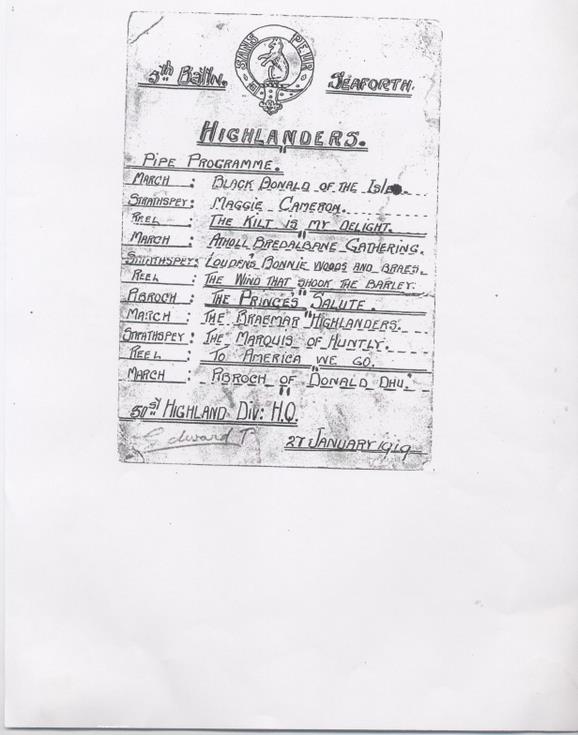 SANS PEUR
5th Battn. SEAFORTH.
HIGHLANDERS.
PIPE PROGRAMME.
MARCH : BLACK DONALD OF THE ISLES.
STRATHSPEY: MAGGIE CAMERON.
REEL : THE KILT IS MY DELIGHT.
MARCH : ATHOLL BREDALBANE GATHERING.
STRATHSPEY: LOUDEN'S BONNIE WOODS AND BRAES.
REEL : THE WIND THAT SHOOK THE BARLEY.
PIBROCH : THE PRINCE'S SALUTE.
MARCH : THE BRAEMAR HIGHLANDERS.
STRATHSPEY : THE MARQUIS OF HUNTLY.
REEL : TO AMERICA WE GO.
MARCH : PIBROCH OF DONALD DHU.
51st HIGHLAND DIV: H.Q.
Edward P.
27 JANUARY 1919